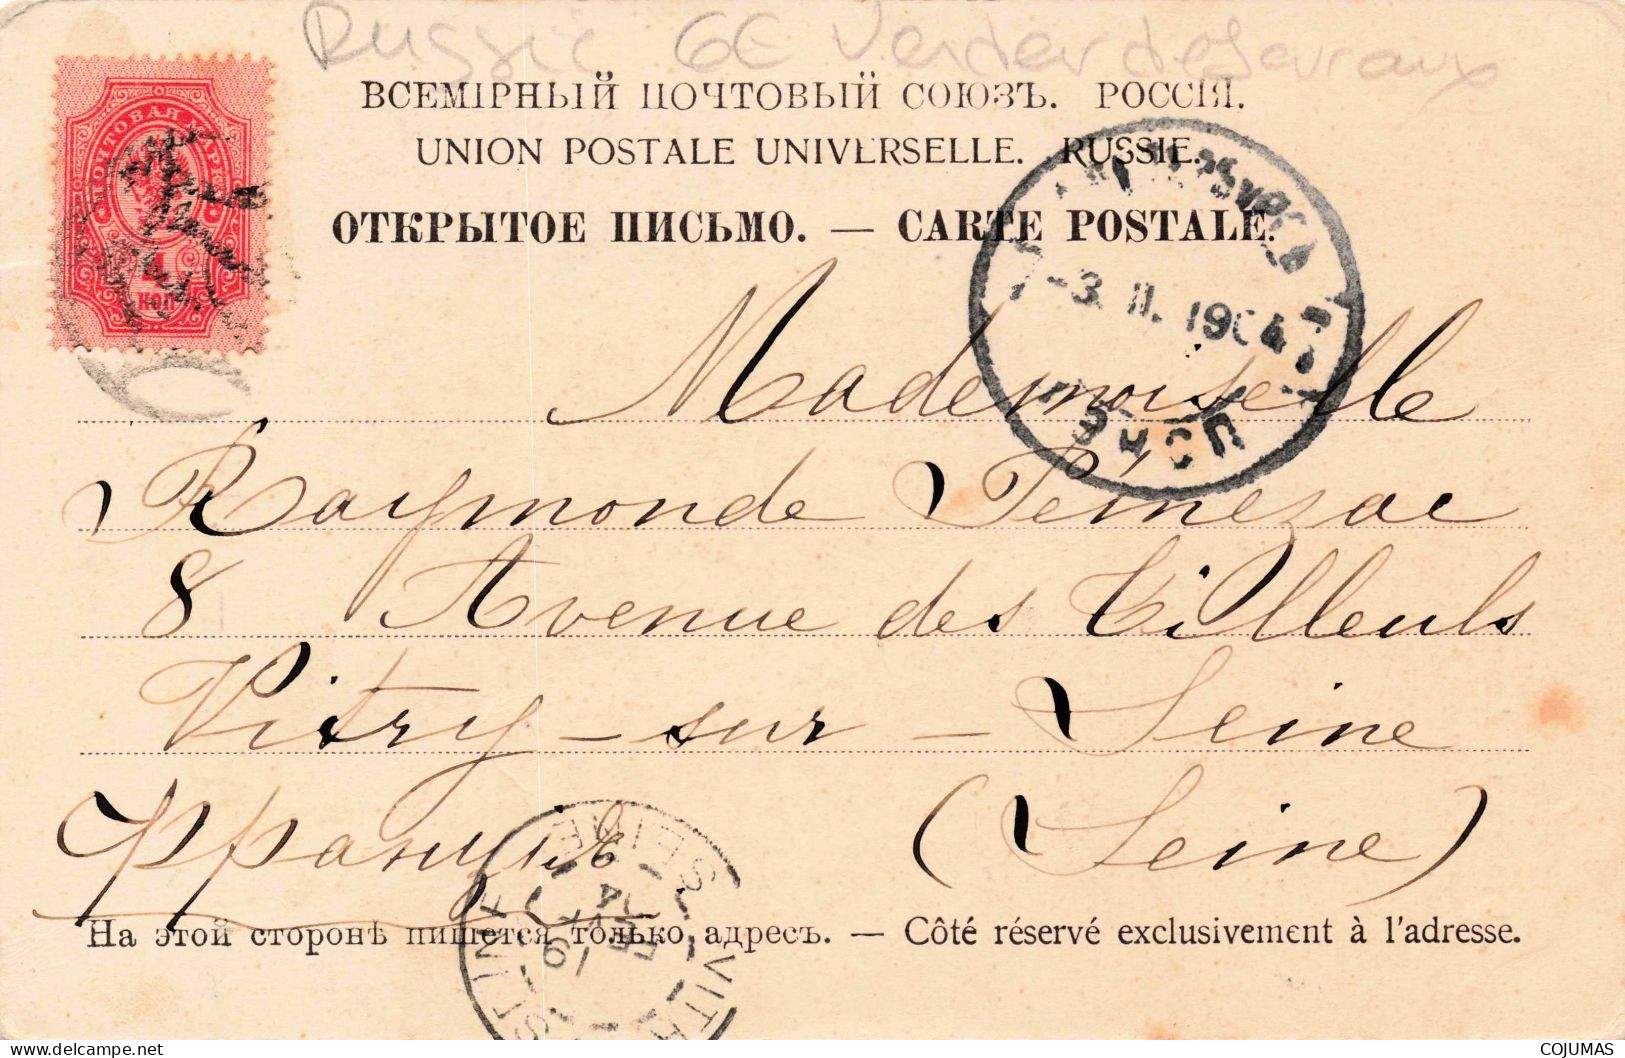 Russie
ВСЕМІРНЫЙ ПОЧТОВЫЙ СОЮЗЪ. РОССІЯ.
UNION POSTALE UNIVERSELLE. RUSSIE.
ОТКРЫТОЕ ПИСЬМО. — CARTE POSTALE.
ПОЧТОВАЯ МАРКА
4 КОП
-3. II. 1904
Mademoiselle
Raymonde
8 Avenue des Tilleuls
Vitry-sur-Seine
Франція (Seine)
На этой сторонѣ пишется только адресъ. — Côté réservé exclusivement à l'adresse.
SEINE
COJUMAS